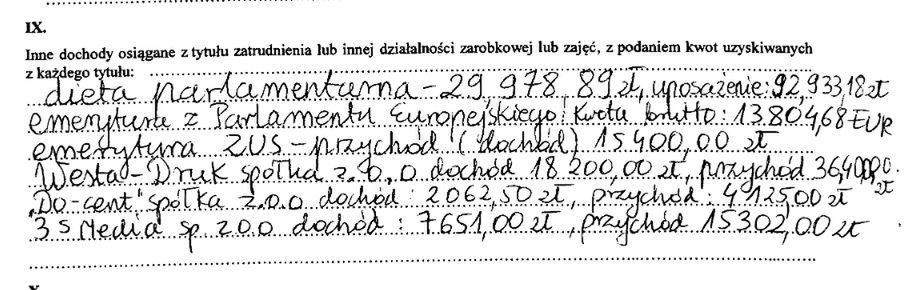 IX.
Inne dochody osiągane z tytułu zatrudnienia lub innej działalności zarobkowej lub zajęć, z podaniem kwot uzyskiwanych
z każdego tytułu:
dieta parlamentarna - 29 978 89 zł, uposażenie: 92,933,18 zł
emerytura z Parlamentu Europejskiego: kwota brutto: 13804,68 EUR
emerytura ZUS - przychód (dochód) 15400,00 zł
Westa-Druk spółka z.o.o dochód 18 200,00 zł, przychód 36,400,00. zł
"Do-cent" spółka z.o.o dochód : 2062,50 zł, przychód : 4125,00 zł
3S Media sp. z o o dochód : 7651,00 zł, przychód 15302,00 zł